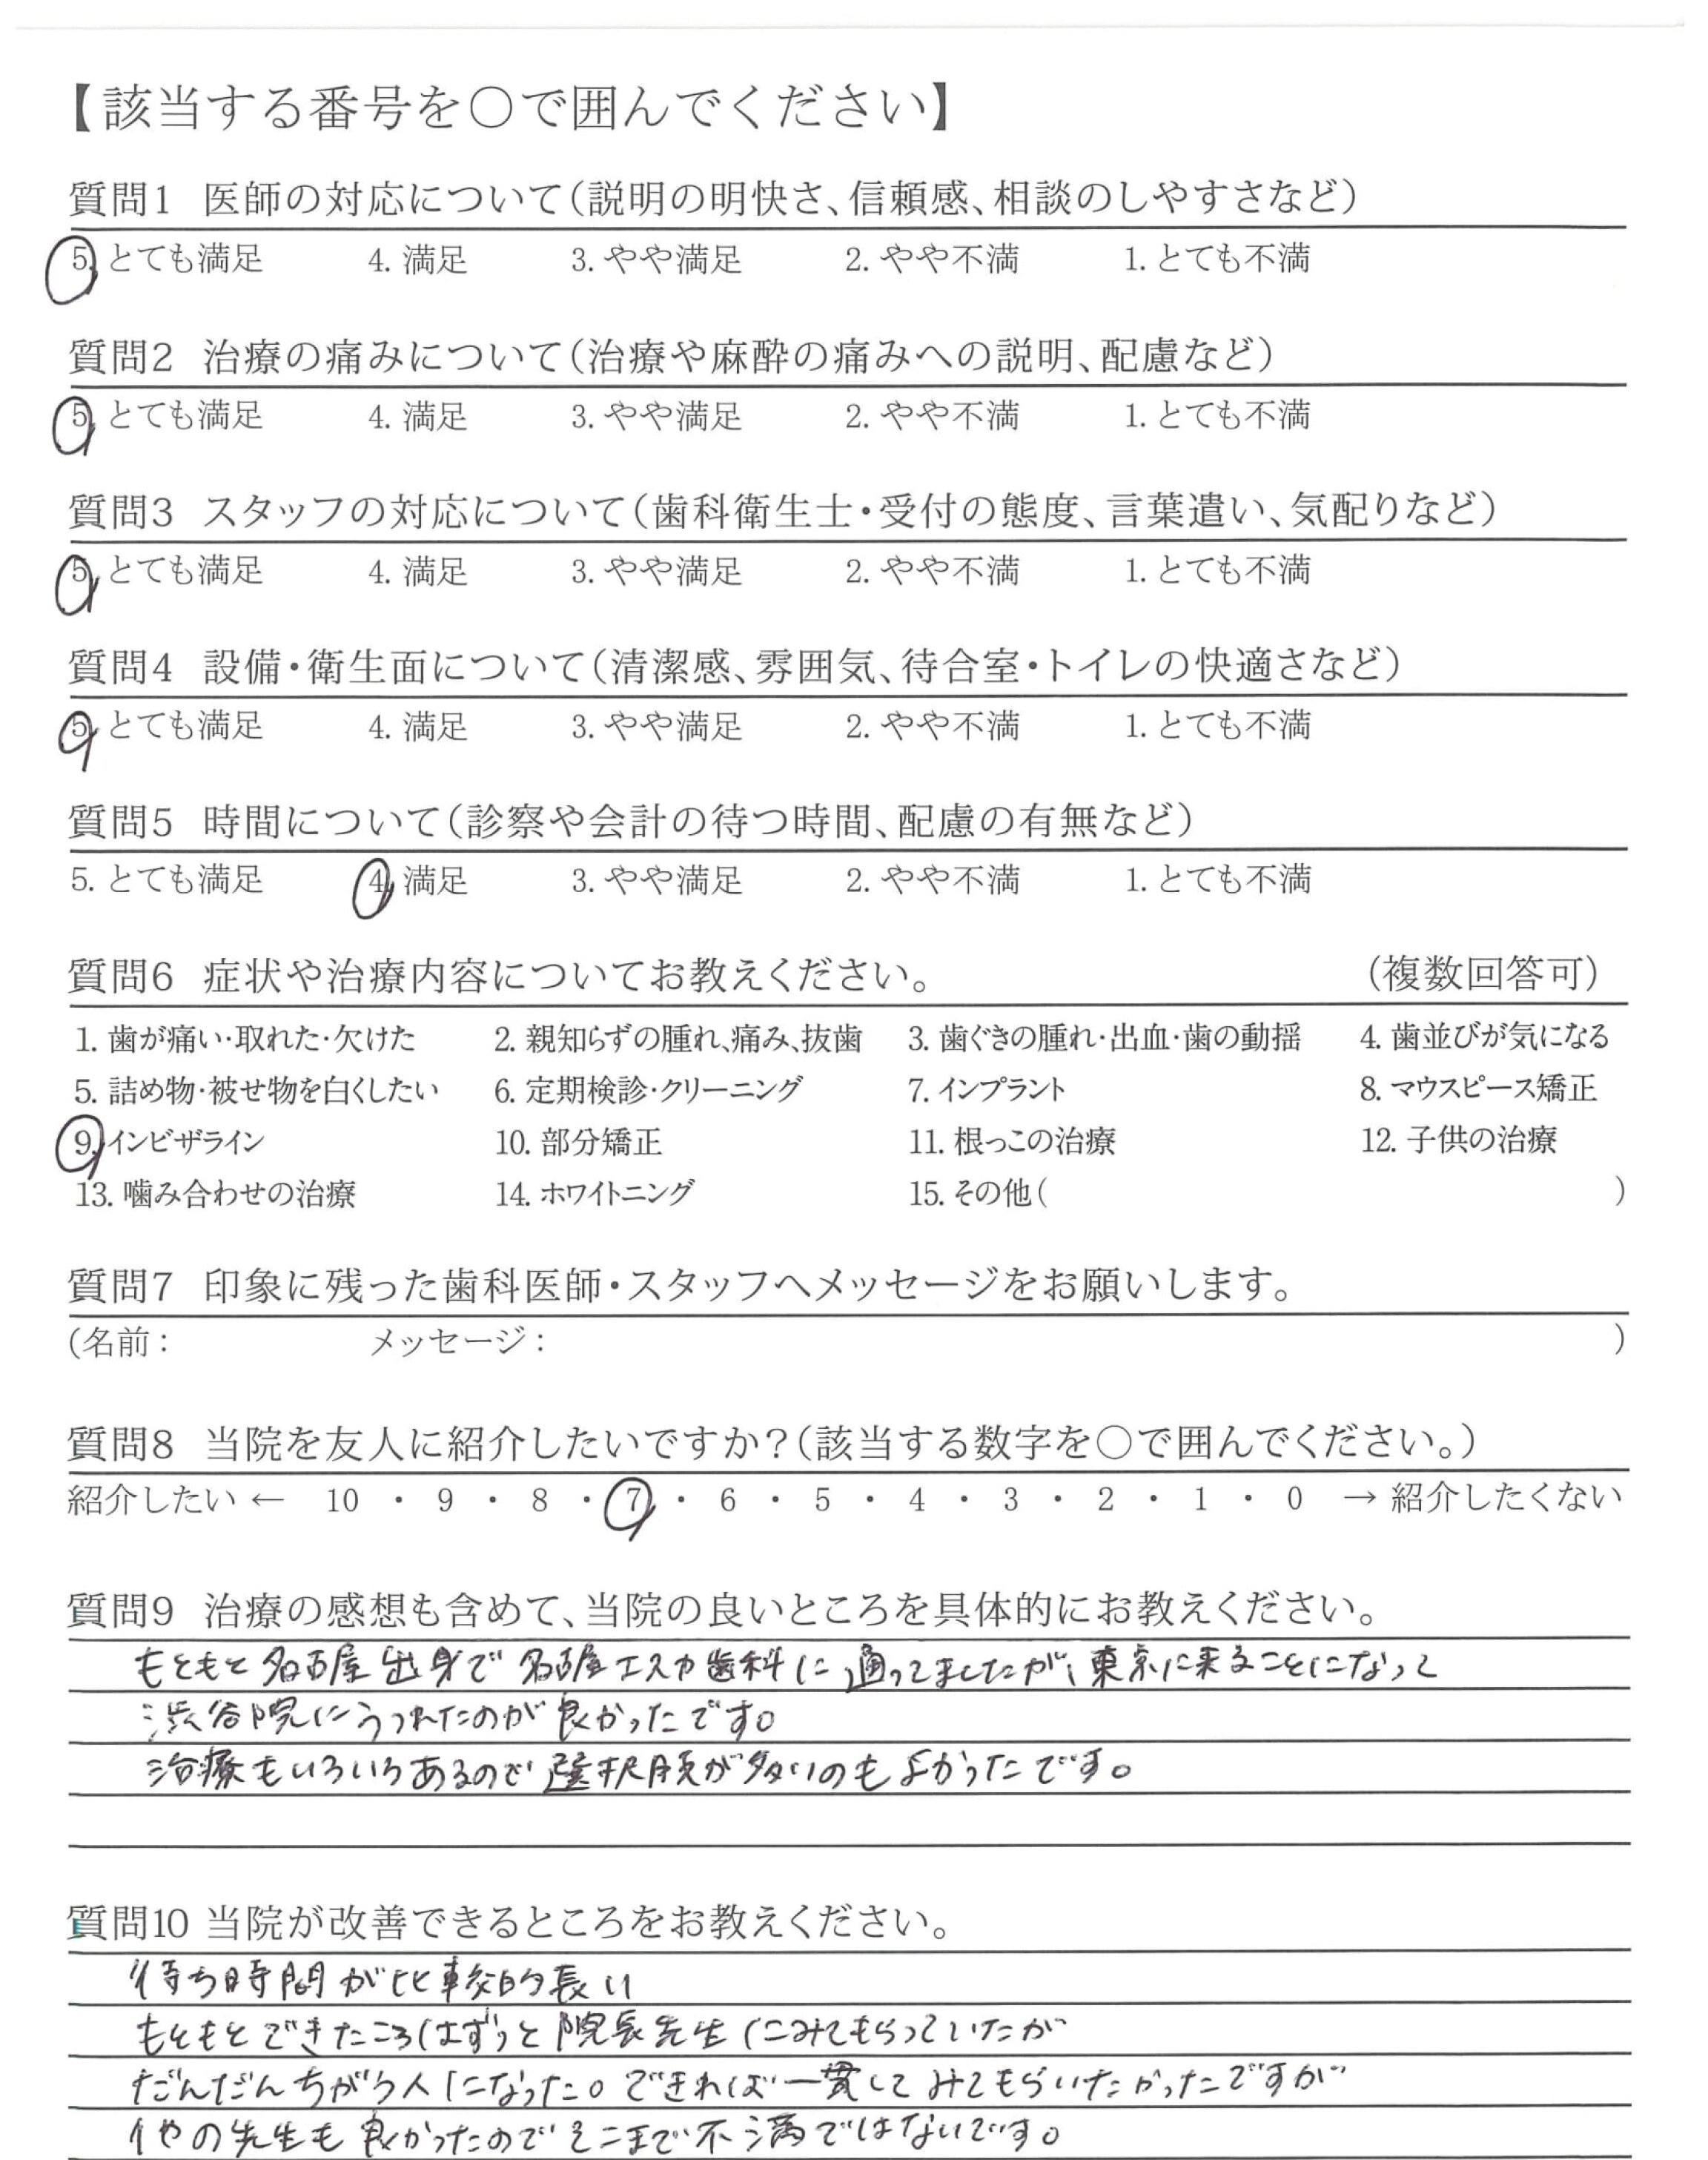 【該当する番号を○で囲んでください】
質問1 医師の対応について(説明の明快さ、信頼感、相談のしやすさなど)
5. とても満足 4. 満足 3. やや満足 2. やや不満 1. とても不満
質問2 治療の痛みについて(治療や麻酔の痛みへの説明、配慮など)
5. とても満足 4. 満足 3. やや満足 2. やや不満 1. とても不満
質問3 スタッフの対応について(歯科衛生士・受付の態度、言葉遣い、気配りなど)
5. とても満足 4. 満足 3. やや満足 2. やや不満 1. とても不満
質問4 設備・衛生面について(清潔感、雰囲気、待合室・トイレの快適さなど)
5. とても満足 4. 満足 3. やや満足 2. やや不満 1. とても不満
質問5 時間について(診察や会計の待つ時間、配慮の有無など)
5. とても満足 4. 満足 3. やや満足 2. やや不満 1. とても不満
質問6 症状や治療内容についてお教えください。 (複数回答可)
1. 歯が痛い・取れた・欠けた 2. 親知らずの腫れ、痛み、抜歯 3. 歯ぐきの腫れ・出血・歯の動揺 4. 歯並びが気になる
5. 詰め物・被せ物を白くしたい 6. 定期検診・クリーニング 7. インプラント 8. マウスピース矯正
9. インビザライン 10. 部分矯正 11. 根っこの治療 12. 子供の治療
13. 噛み合わせの治療 14. ホワイトニング 15. その他( )
質問7 印象に残った歯科医師・スタッフへメッセージをお願いします。
(名前： メッセージ： )
質問8 当院を友人に紹介したいですか？(該当する数字を○で囲んでください。)
紹介したい ← 10 ・ 9 ・ 8 ・ 7 ・ 6 ・ 5 ・ 4 ・ 3 ・ 2 ・ 1 ・ 0 → 紹介したくない
質問9 治療の感想も含めて、当院の良いところを具体的にお教えください。
もともと名古屋出身で名古屋エスカ歯科に通ってましたが、東京に来ることになって
渋谷院にうつれたのが良かったです。
治療もいろいろあるので選択肢が多いのもよかったです。
質問10 当院が改善できるところをお教えください。
待ち時間が比較的長い
もともとできたころはずっと院長先生にみてもらっていたが
だんだんちがう人になった。できれば一貫してみてもらいたかったですが
他の先生も良かったのでそこまで不満ではないです。